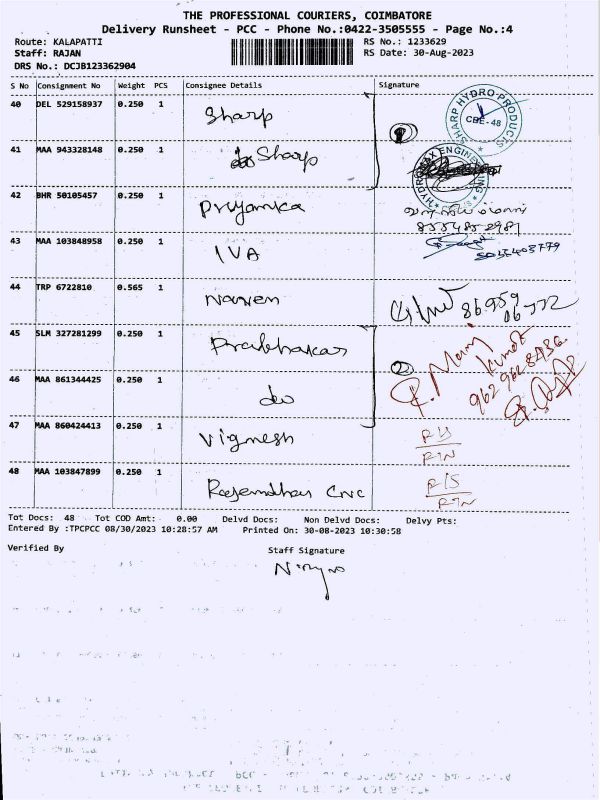 THE PROFESSIONAL COURIERS, COIMBATORE
Delivery Runsheet - PCC - Phone No.:0422-3505555 - Page No.:4
Route: KALAPATTI
RS No.: 1233629
Staff: RAJAN
RS Date: 30-Aug-2023
DRS No.: DCJB123362904
S No Consignment No Weight PCS Consignee Details Signature
40 DEL 529158937 0.250 1 Sharp
SHARP HYDRO PRODUCTS
CBE-48
41 MAA 943328148 0.250 1 Sharp
ENGINEERING
42 BHR 50105457 0.250 1 Priyanka
8554852981
43 MAA 103848958 0.250 1 IVA
44 TRP 6722810 0.565 1 Naveen
86959
06772
45 SLM 327281299 0.250 1 Prabhakar
2
P. Mani
Kumar
9629628436
46 MAA 861344425 0.250 1 do
47 MAA 860424413 0.250 1 Vignesh
RTN
48 MAA 103847899 0.250 1 CNC
R/S
RTN
Tot Docs: 48 Tot COD Amt: 0.00 Delvd Docs: Non Delvd Docs: Delvy Pts:
Entered By :TPCPCC 08/30/2023 10:28:57 AM Printed On: 30-08-2023 10:30:58
Verified By
Staff Signature